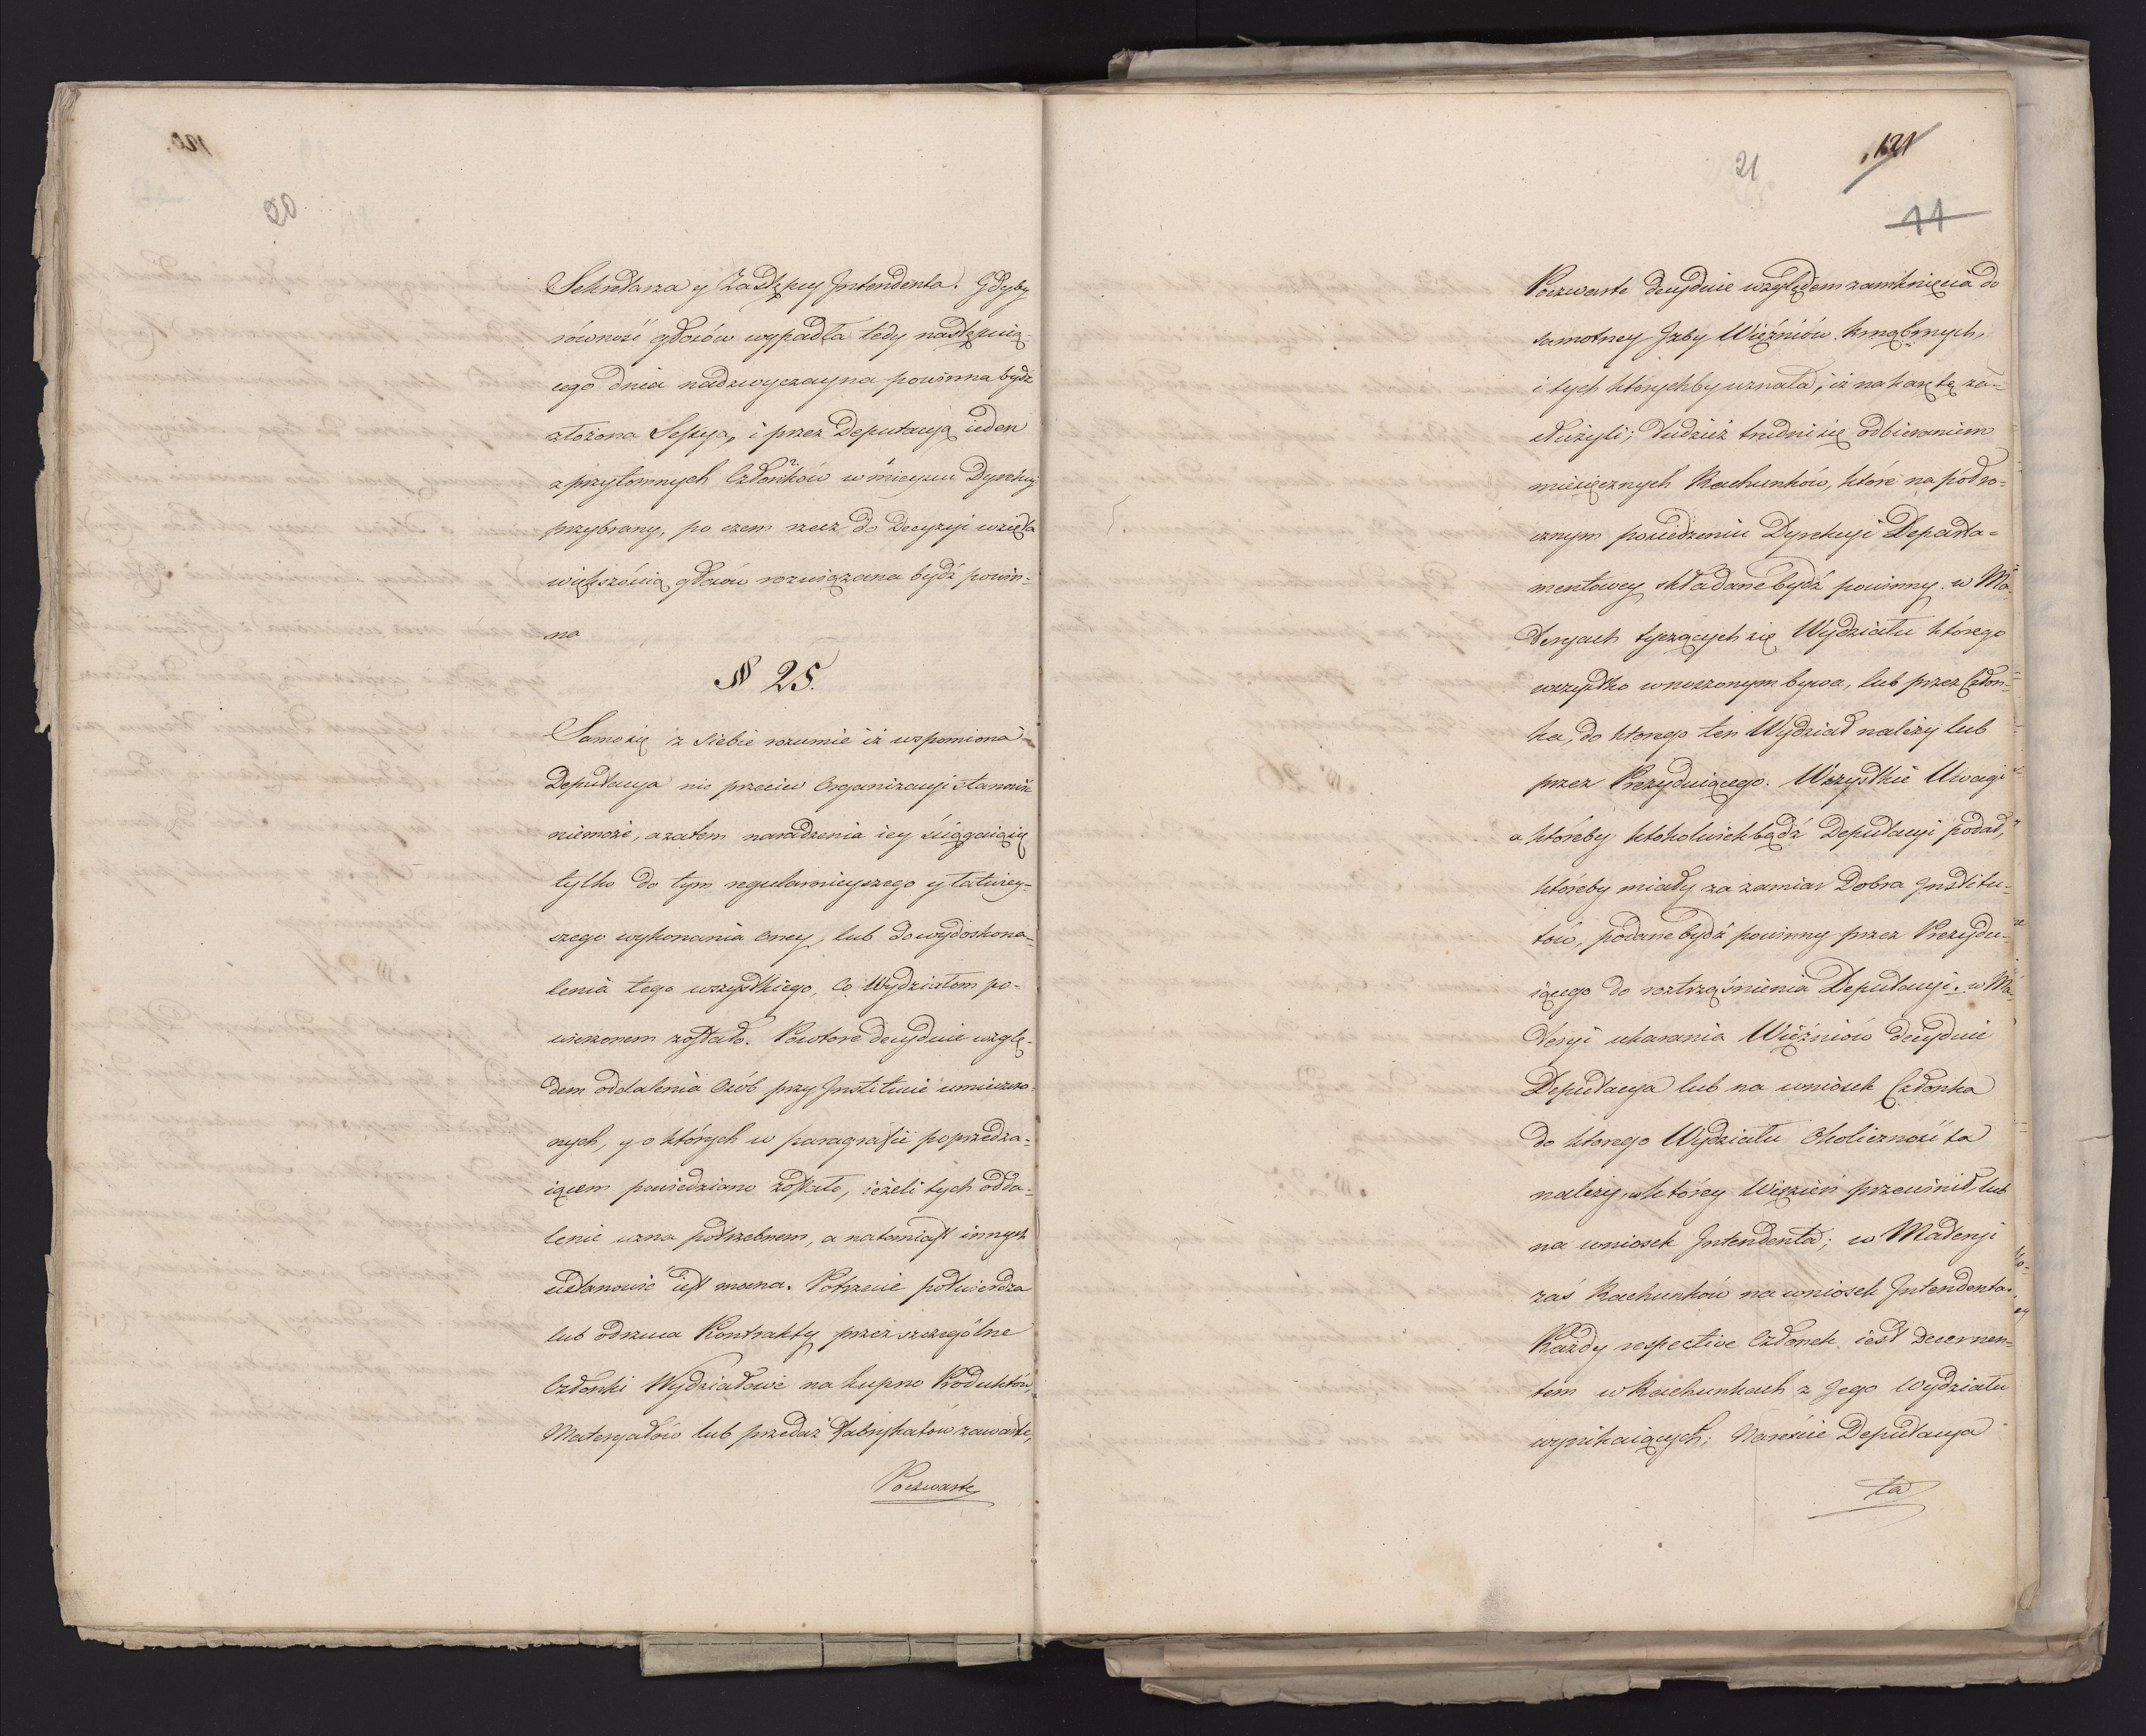 120.
20
Sekretarza y Zastępcy Intendenta. Gdyby
równość głosów wypadła tedy następuią-
cego dnia nadzwyczayna powinna bydź
złożona Sessya, i przez Deputacyą ieden
z przytomnych Członków w mieyscu Dyrekcyi
przybrany, po czem rzecz do Decyzyi wzięta
większością głosów rozwiązana bydź powin-
na
§ 25.
Samo się z siebie rozumie iż wspomiona
Deputacya nic przeciw Organizacyi stanowić
niemoże, a zatem naradzenia iey ściągaią się
tylko do tym regularnieyszego y łatwiey-
szego wykonania Oney, lub do wydoskona-
lenia tego wszystkiego, Co Wydziałom po-
wierzonem zostało. Powtore decyduie wzglę-
dem oddalenia Osób przy Institucie umieszczo-
nych, y o których w paragrafie poprzedza-
iącem powiedziano zostało, ieżeli tych odda-
lenie uzna potrzebnem, a natomiast innych
ustanowić iest mocna. Potrzecie potwierdza
lub odrzuca Kontrakty przez szczególne
Członki Wydziałowe na kupno Produktów,
Materyałów lub przedaż Fabrykatów zawarte,
Poczwarte
121
21
11
Poczwarte decyduie względem zamknięcia do
samotney Izby Więźniów krnąbrnych,
i tych którychby uznała, iż na karę tę za-
służyli; Tudzież trudni się odbieraniem
miesięcznych Rachunków, które na półro-
cznym posiedzeniu Dyrekcyi Departa-
mentowey składane bydź powinny. w Ma-
teryach tyczących się Wydziału którego
wszystko wnoszonym bywa, lub przez Człon-
ka, do ktorego ten Wydział należy lub
przez Prezyduiącego. Wszystkie Uwagi
a któreby ktokolwiekbądź Deputacyi podał,
któreby miały za zamiar Dobra Institu-
tów, podane bydź powinny przez Prezydu-
iącego do roztrząśnienia Deputacyi. w Ma-
teryi ukarania Więźniów decyduie
Deputacya lub na wniosek Członka
do ktorego Wydziału Okoliczność ta
należy, w którey Więzień przewinił, lub
na wniosek Intendenta; w Materyi
zaś Rachunków na wniosek Intendenta.
Każdy respective Członek iest Decernen-
tem w Rachunkach z Jego Wydziału
wynikaiących; Nareście Deputacya
ta